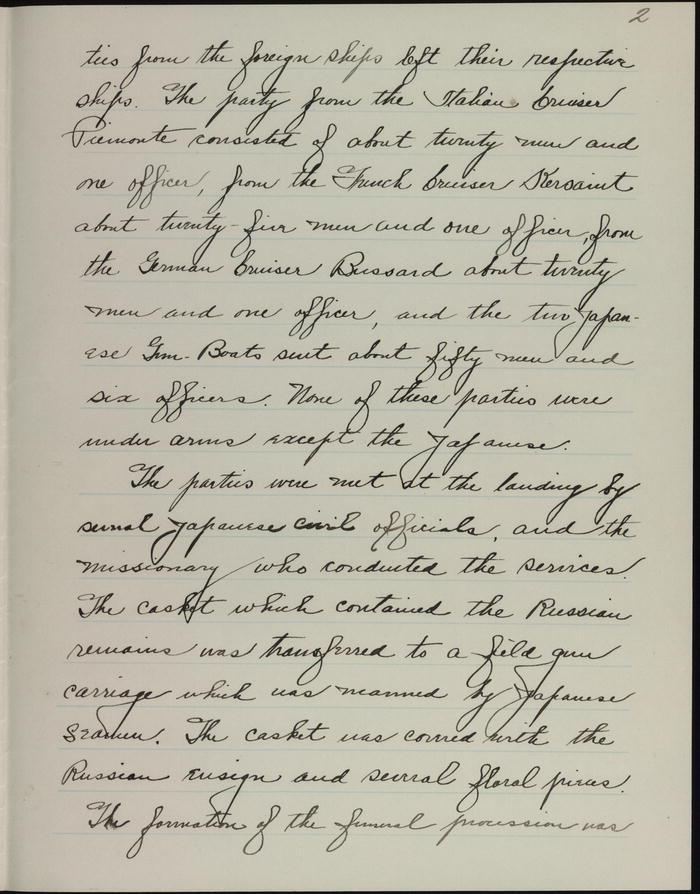 2
ties from the foreign ships left their respective
ships. The party from the Italian Cruiser
Piemonte consisted of about twenty men and
one officer, from the French Cruiser Kersaint
about twenty-five men and one officer, from
the German Cruiser Bussard about twenty
men and one officer, and the two Japan-
ese Gun-Boats sent about fifty men and
six officers. None of these parties were
under arms except the Japanese.
The parties were met at the landing by
several Japanese civil officials, and the
missionary who conducted the services.
The casket which contained the Russian
remains was transferred to a field gun
carriage which was manned by Japanese
Seamen. The casket was covered with the
Russian ensign and several floral pieces.
The formation of the funeral procession was